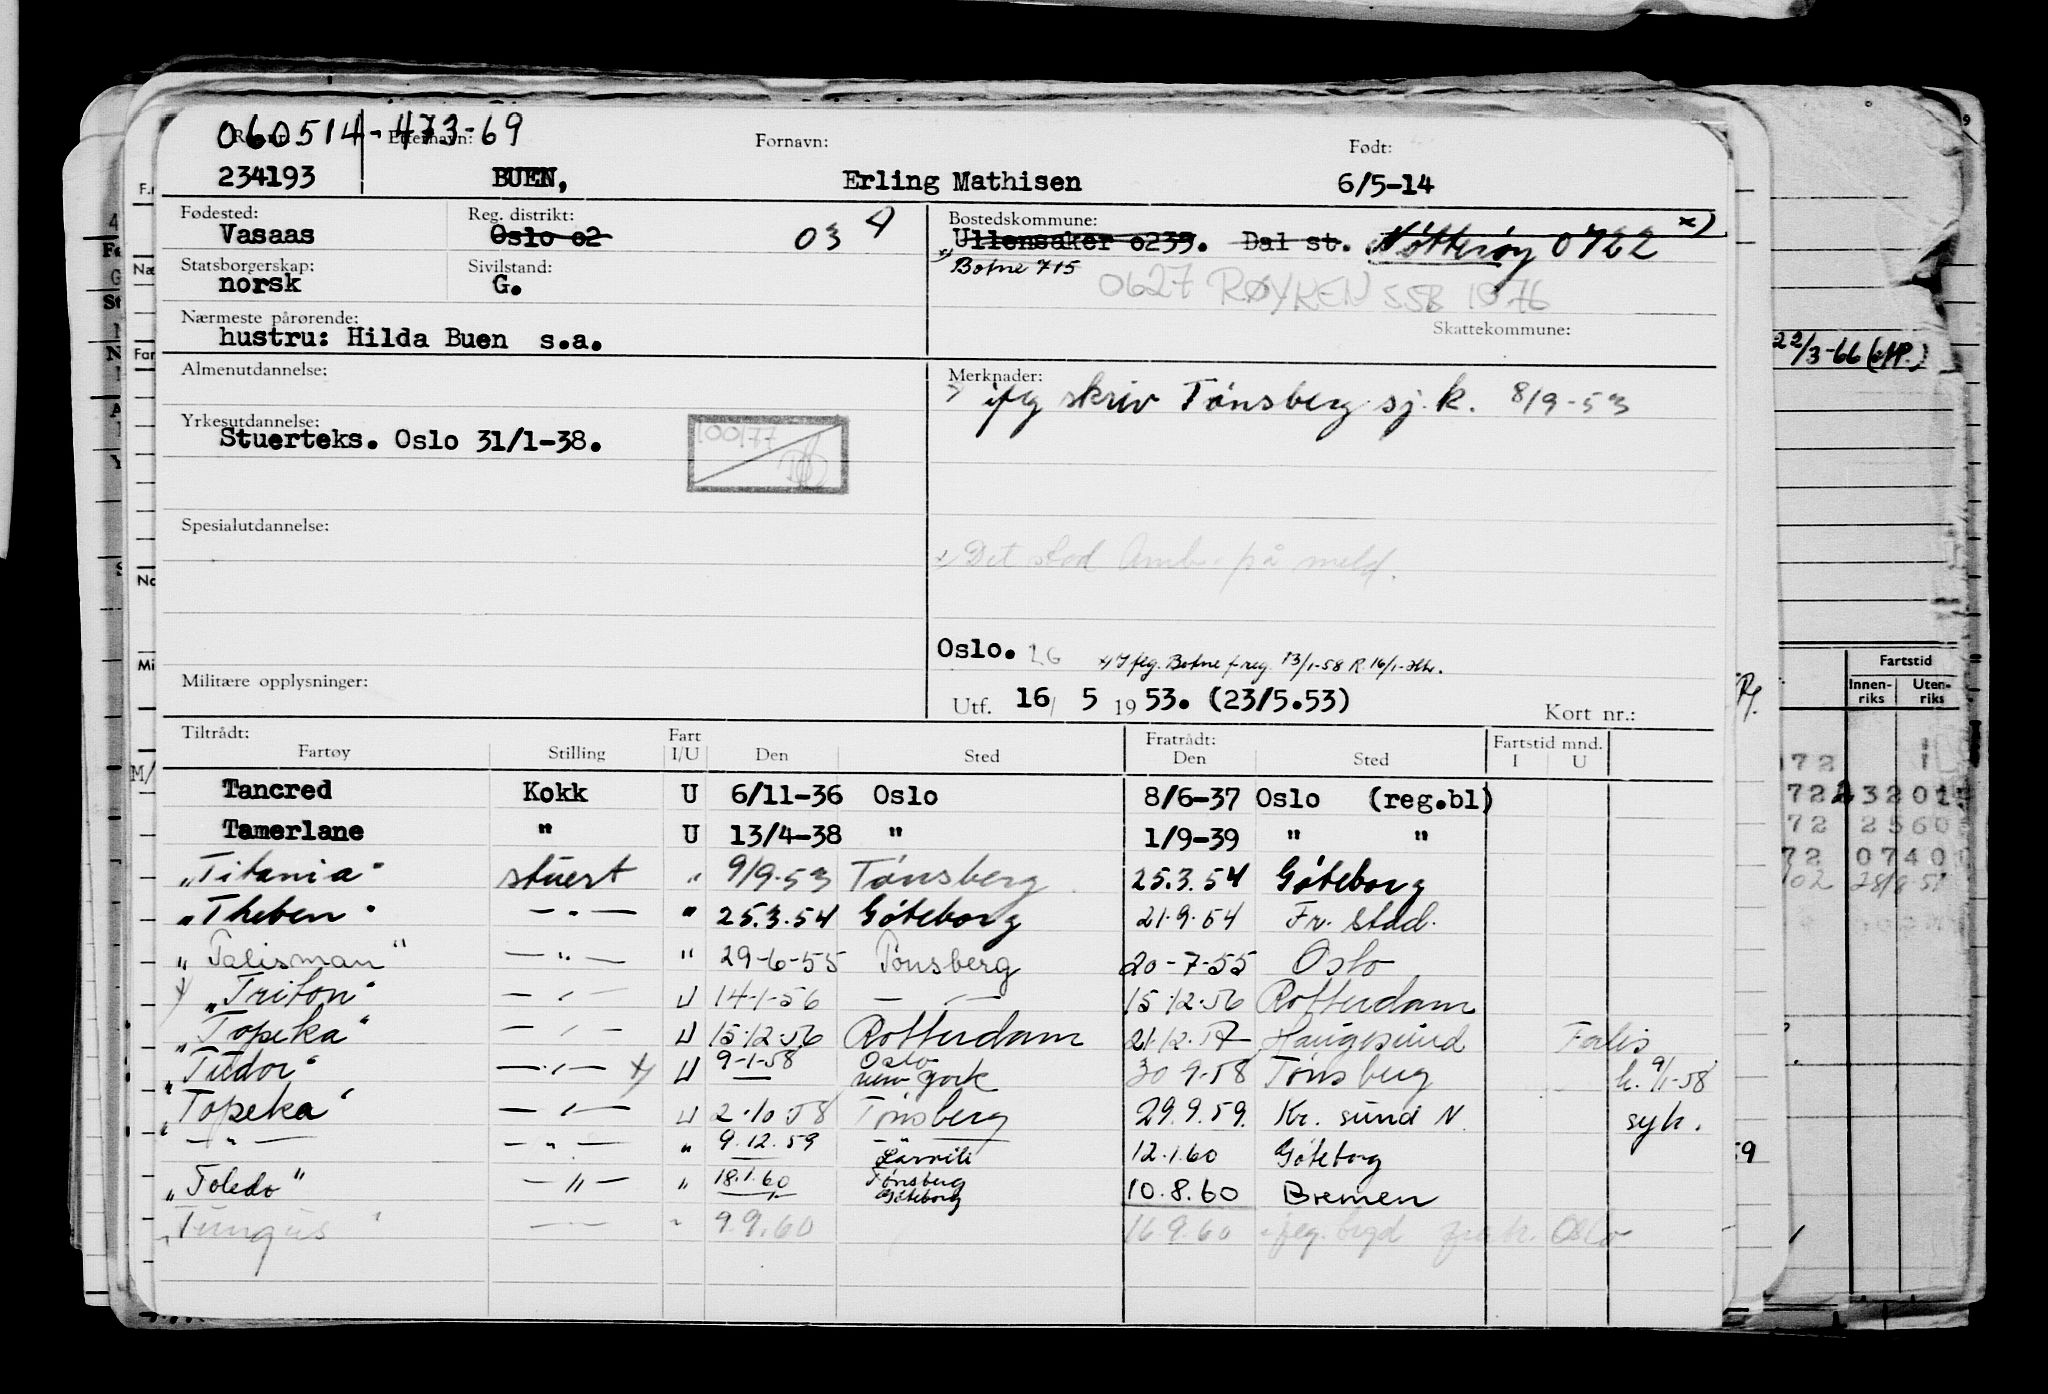 060514-473-69
Reg.nr. Etternavn: Fornavn: Født:
234193 BUEN, Erling Mathisen 6/5-14
Fødested: Reg. distrikt: Bostedskommune:
Vasaas Oslo 02 03 4) Ullensaker 0233. Dal st. Nøtterøy 0722 x)
Statsborgerskap: Sivilstand: Botne 715
norsk G. 0627 RØYKEN SSB 1976
Nærmeste pårørende: Skattekommune:
hustru: Hilda Buen s.a.
Almenutdannelse: Merknader:
ifg skriv Tønsberg sj.k. 8/9-53
Yrkesutdannelse:
Stuerteks. Oslo 31/1-38.
100177
Spesialutdannelse:
Det stod på meld.
Oslo. 26 x) Iføg. Botne f.reg. 13/1-58 R. 16/1-
Militære opplysninger:
Utf. 16/ 5 1953. (23/5.53) Kort nr.:
Tiltrådt: Fart Fratrådt: Fartstid mnd.
Fartøy Stilling I/U Den Sted Den Sted I U
Tancred Kokk U 6/11-36 Oslo 8/6-37 Oslo (reg.bl)
Tamerlane " U 13/4-38 " 1/9-39 " "
"Titania" stuert " 9/9-53 Tønsberg 25.3.54 Göteborg
"Theben" — " — " 25.3.54 Göteborg 21.9.54 Fr. stad.
"Talisman" — " — " 29-6-55 Tønsberg 20-7-55 Oslo
"Triton" — " — U 14-1-56 — " — 15.12.56 Rotterdam
"Topeka" — " — U 15.12.56 Rotterdam 21.12.57 Haugesund Ferie
"Tudor" — " — x) U 9-1-58 Oslo New York 30 9-58 Tønsberg k. 9/1-58
"Topeka" — " — U 2.10.58 Tønsberg 29.9.59. Kr. sund N. syk.
— " — — " — " 9.12.59 Larvik 12.1.60 Göteborg
"Toledo" — " — " 18.1.60 Tønsberg Göteborg 10.8.60 Bremen
"Tungus" — " — " 9.9.60 16.9.60 Oslo
22/3-66
Fartstid
Innen-riks Uten-riks